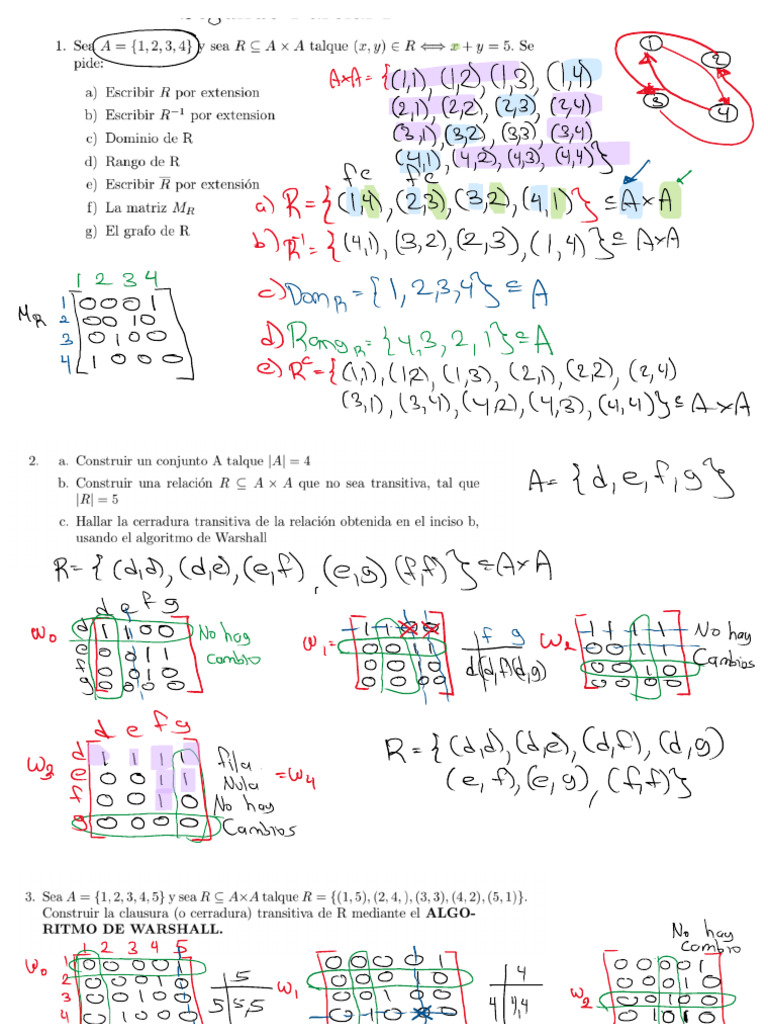 1. Sea A = {1, 2, 3, 4} y sea R ⊆ A × A talque (x, y) ∈ R ⟺ x + y = 5. Se
pide:
a) Escribir R por extension
b) Escribir R⁻¹ por extension
c) Dominio de R
d) Rango de R
e) Escribir R̅ por extensión
f) La matriz M_R
g) El grafo de R
AxA = {(1,1), (1,2) (1,3), (1,4)
(2,1), (2,2), (2,3), (2,4)
(3,1), (3,2), (3,3), (3,4)
(4,1), (4,2), (4,3), (4,4)}
1
2
3
4
a) R = {(1,4), (2,3), (3,2), (4,1)} ⊆ A x A
b) R⁻¹ = {(4,1), (3,2), (2,3), (1,4)} ⊆ A x A
c) Dom_R = {1,2,3,4} ⊆ A
d) Rang_R = {4,3,2,1} ⊆ A
e) R^c = {(1,1), (1,2), (1,3), (2,1), (2,2), (2,4)
(3,1), (3,4), (4,2), (4,3), (4,4)} ⊆ A x A
1 2 3 4
M_R
1 0 0 0 1
2 0 0 1 0
3 0 1 0 0
4 1 0 0 0
2. a. Construir un conjunto A talque |A| = 4
b. Construir una relación R ⊆ A × A que no sea transitiva, tal que
|R| = 5
c. Hallar la cerradura transitiva de la relación obtenida en el inciso b,
usando el algoritmo de Warshall
A = {d, e, f, g}
R = {(d,d), (d,e), (e,f), (e,g) (f,f)} ⊆ A x A
d e f g
W₀
d 1 1 0 0
e 0 0 1 1
f 0 0 1 0
g 0 0 0 0
No hay
cambio
W₁ =
0 0 1 1
0 0 1 0
0 0 0 0
f g
d (d,f) (d,g)
W₂
1 1 1 1
0 0 1 1
0 0 1 0
0 0 0 0
No hay
Cambios
d e f g
W₃
d 1 1 1 1
e 0 0 1 1
f 0 0 1 0
g 0 0 0 0
fila
Nula
No hay
Cambios
= W₄
R = {(d,d), (d,e), (d,f), (d,g)
(e,f), (e,g), (f,f)}
3. Sea A = {1, 2, 3, 4, 5} y sea R ⊆ A×A talque R = {(1, 5), (2, 4, ), (3, 3), (4, 2), (5, 1)}.
Construir la clausura (o cerradura) transitiva de R mediante el ALGO-
RITMO DE WARSHALL.
1 2 3 4 5
W₀
1 0 0 0 0 1
2
3
4
5
5 5,5
W₁
0 0 0 0 1
4
4 4,4
No hay
cambio
W₂
0 0 0 0 1